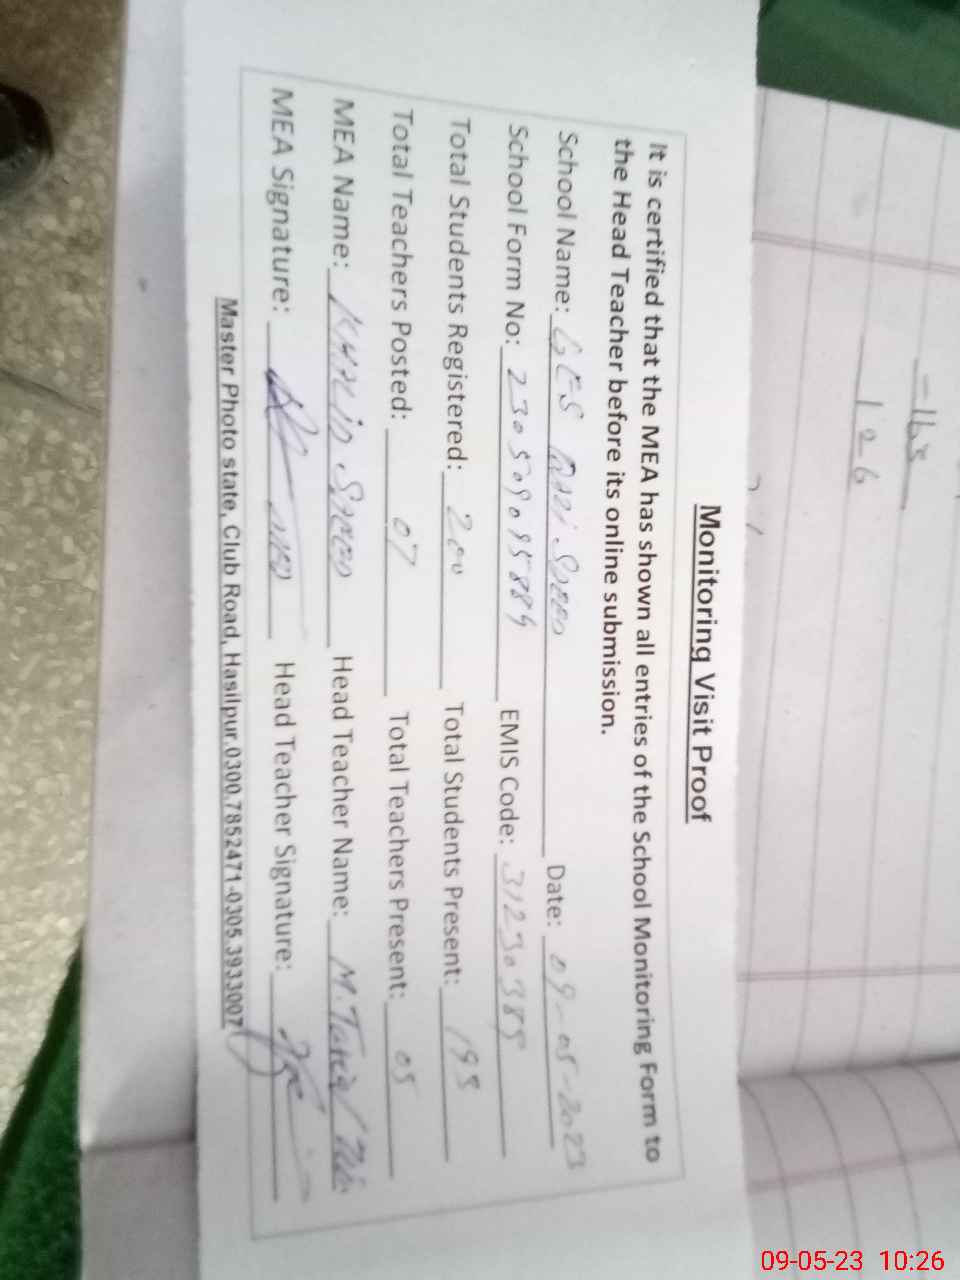 Monitoring Visit Proof
It is certified that the MEA has shown all entries of the School Monitoring Form to
the Head Teacher before its online submission.
School Name: GES Date: 09-05-2023
School Form No: EMIS Code: 31230385
Total Students Registered: 200 Total Students Present: 195
Total Teachers Posted: 07 Total Teachers Present: 05
MEA Name: KHALID Head Teacher Name: M. Tariq
MEA Signature: Head Teacher Signature:
Master Photo state, Club Road, Hasilpur.0300.7852471-0305.3933007
126
09-05-23 10:26